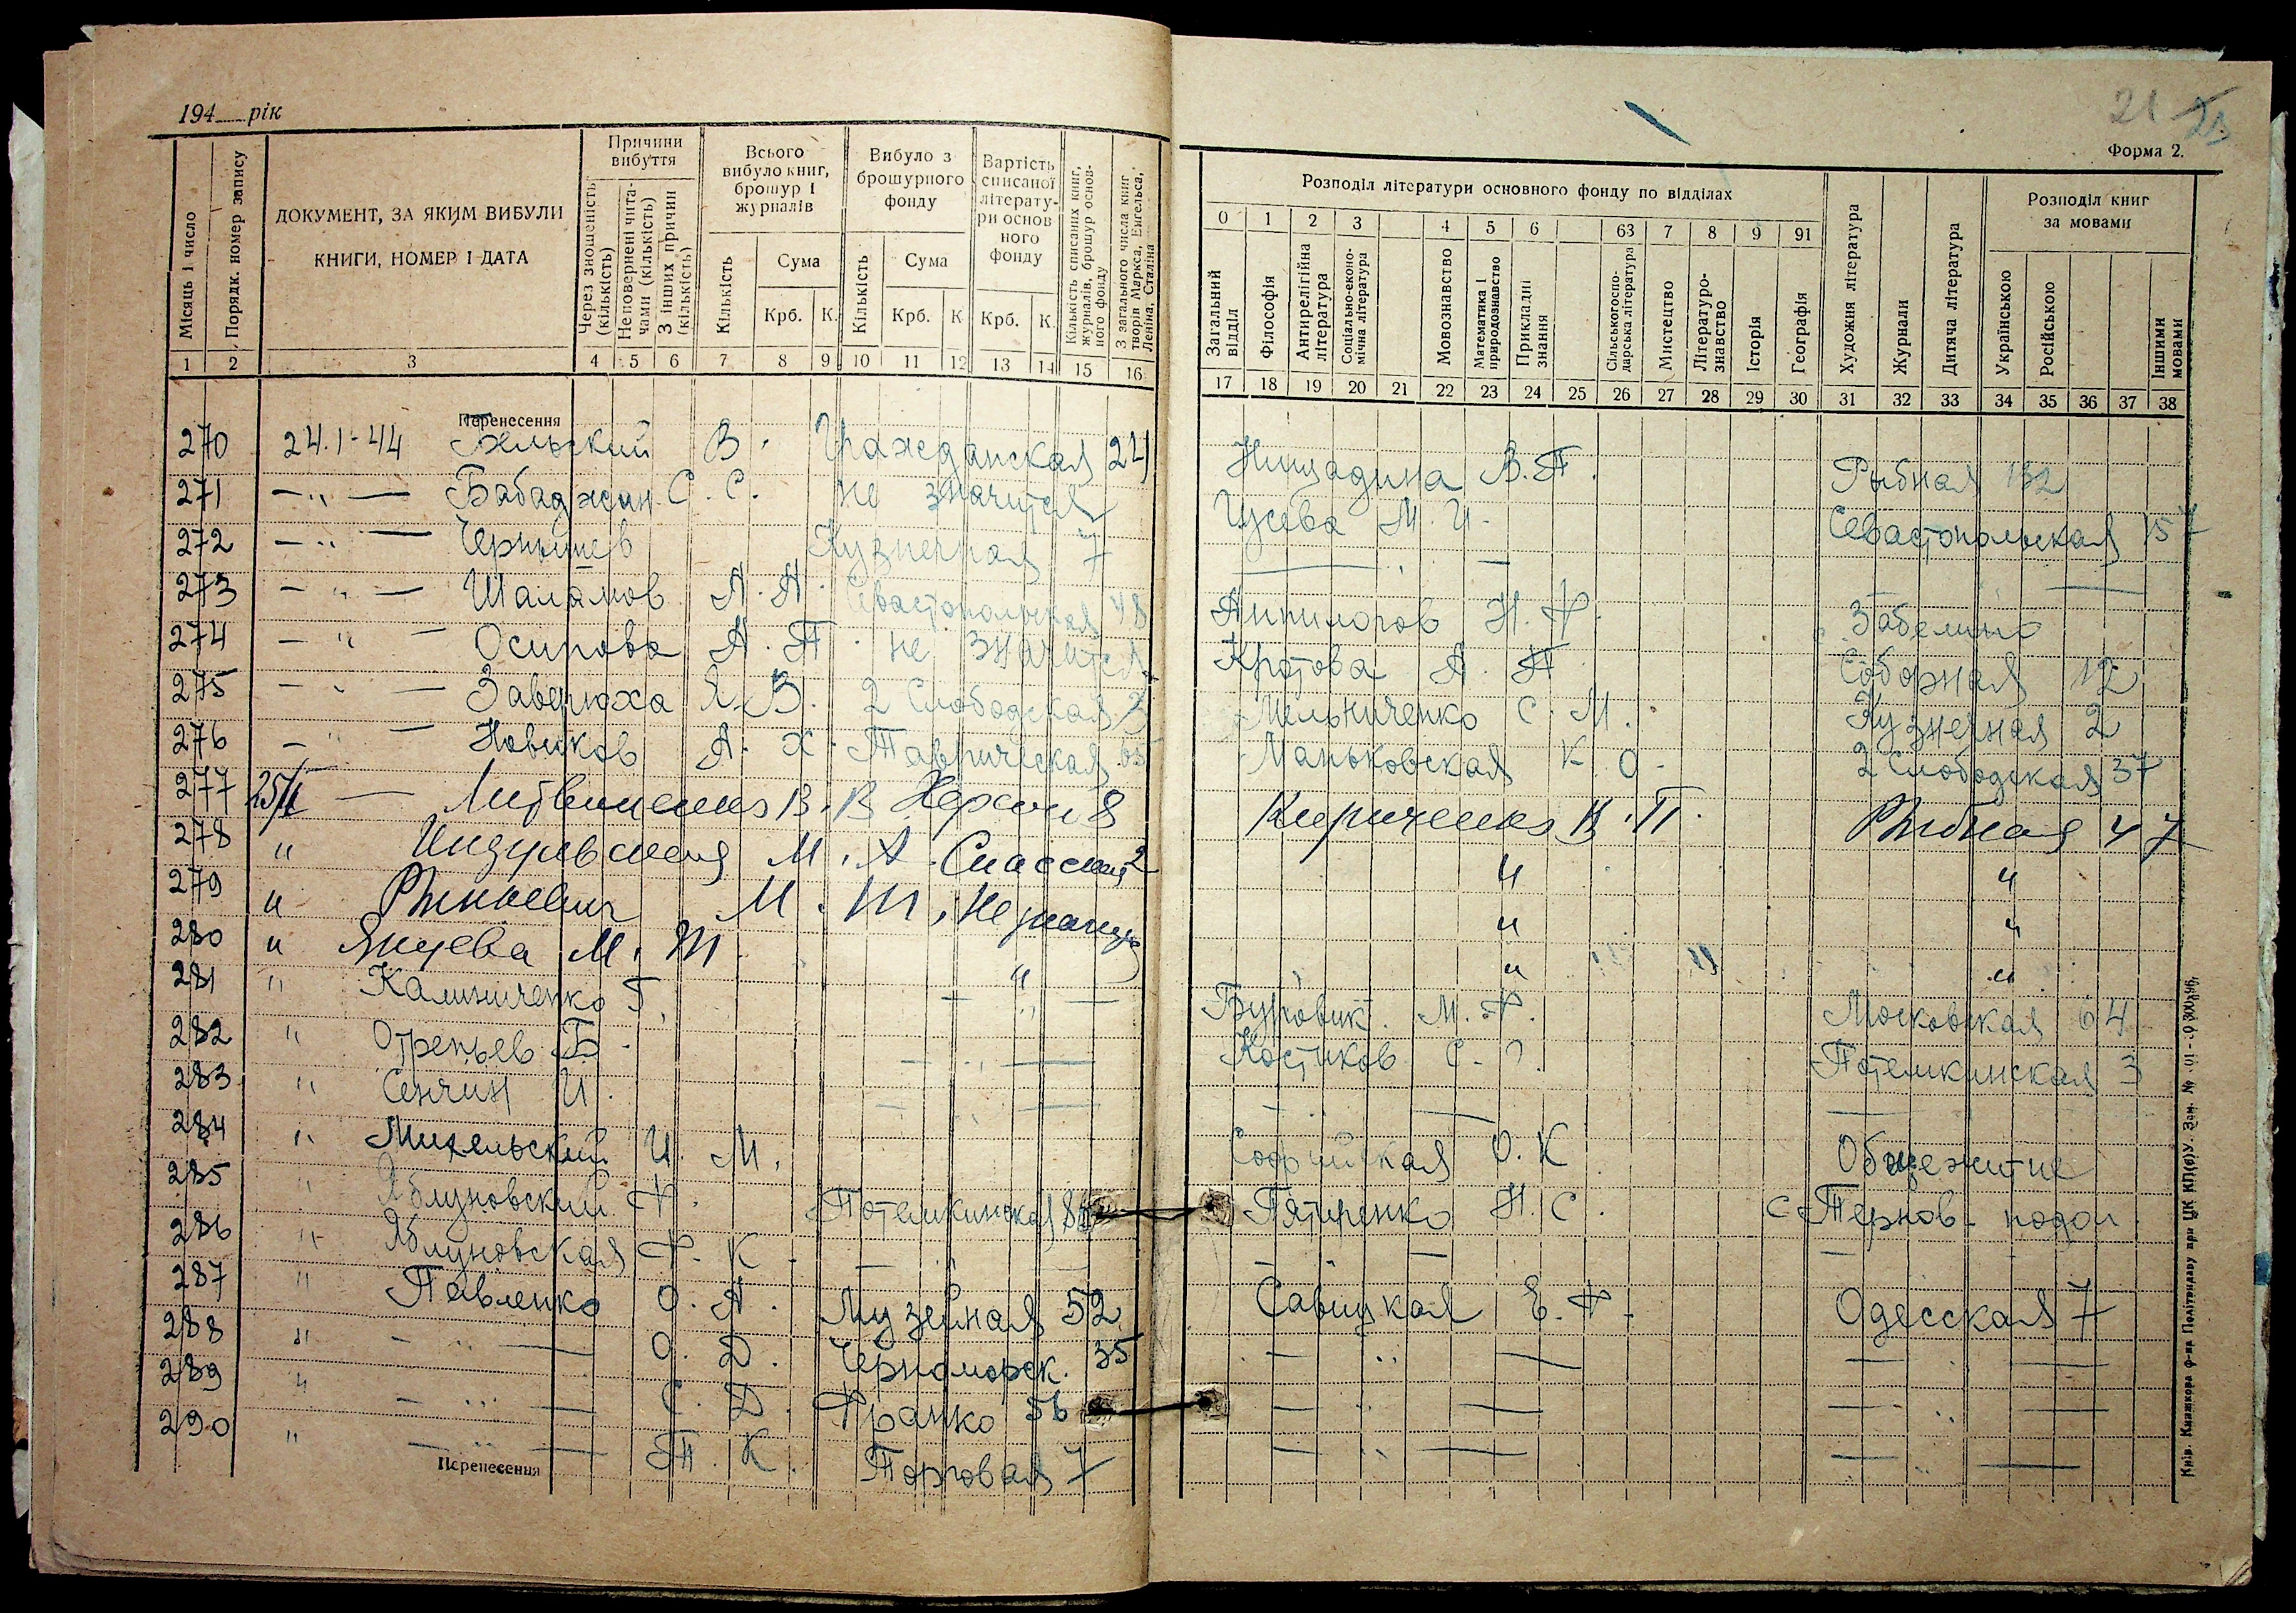 194 рік
21
Форма 2.
Місяць і число
Порядк. номер запису
ДОКУМЕНТ, ЗА ЯКИМ ВИБУЛИ
КНИГИ, НОМЕР І ДАТА
Причини вибуття
Через зношеність (кількість)
Неповернені читачами (кількість)
З інших причин (кількість)
Всього вибуло книг, брошур і журналів
Кількість
Сума
Крб.
К.
Вибуло з брошурного фонду
Кількість
Сума
Крб.
К
Вартість списаної літератури основного фонду
Крб.
К.
Кількість списаних книг, журналів, брошур основного фонду
З загального числа книг творів Маркса, Енгельса, Леніна, Сталіна
Розподіл літератури основного фонду по відділах
0 1 2 3 4 5 6 63 7 8 9 91
Загальний відділ
Філософія
Антирелігійна література
Соціально-економічна література
Мовознавство
Математика і природознавство
Прикладні знання
Сільськогосподарська література
Мистецтво
Літературознавство
Історія
Географія
Художня література
Журнали
Дитяча література
Розподіл книг за мовами
Українською
Російською
Іншими мовами
1 2 3 4 5 6 7 8 9 10 11 12 13 14 15 16
17 18 19 20 21 22 23 24 25 26 27 28 29 30 31 32 33 34 35 36 37 38
Перенесення
270 24.1-44 Бельский В. Гражданская 24 В.П. Рыбная 132
271 — " — Бабаджан С. С. не значится Гусева М. И. Севастопольская 157
272 — " — Чернышев Кузнечная 7 — " —
273 — " — Шаламов А. А. Севастопольская 48 Анпилогов Н. Ф. Забелино
274 — " — Осипова А. П. не значится Кротова А. П. Соборная 12
275 — " — Заверюха Я. В. 2 Слободская 3 Мельниченко С. М. Кузнечная 2
276 — " — Новиков А. Х. Таврическая 65 Маньковская К. О. 2 Слободская 37
277 25/I — Литвиненко В. В. Херсон 8 Кириченко В. П. Рыбная 47
278 " М. А. Спасская 2 " "
279 " М. Ш. Не значится " "
280 " Янцева М. Ш. " " "
281 " Калиниченко Г. — " — Буровик М. Ф. Московская 64
282 " Отрепьев Б. — " — Костиков С. Потемкинская 3
283 " Сенчин И. — " — — " —
284 " Михельский И. М. Софийская О. К. Общежитие
285 " Яблуновский Ф. Потемкинская Пятиренко Н. С. с. Тернов. подол.
286 " Яблуновская Ф. К. — " — — " —
287 " Павленко О. А. Музейная 52 Савицкая Е. Ф. Одесская 7
288 " — " — О. Д. Черноморск. 35 — " — — " —
289 " — " — С. Д. Франко 56 — " — — " —
290 " — " — П. К. Торговая 7 — " — — " —
Перенесення